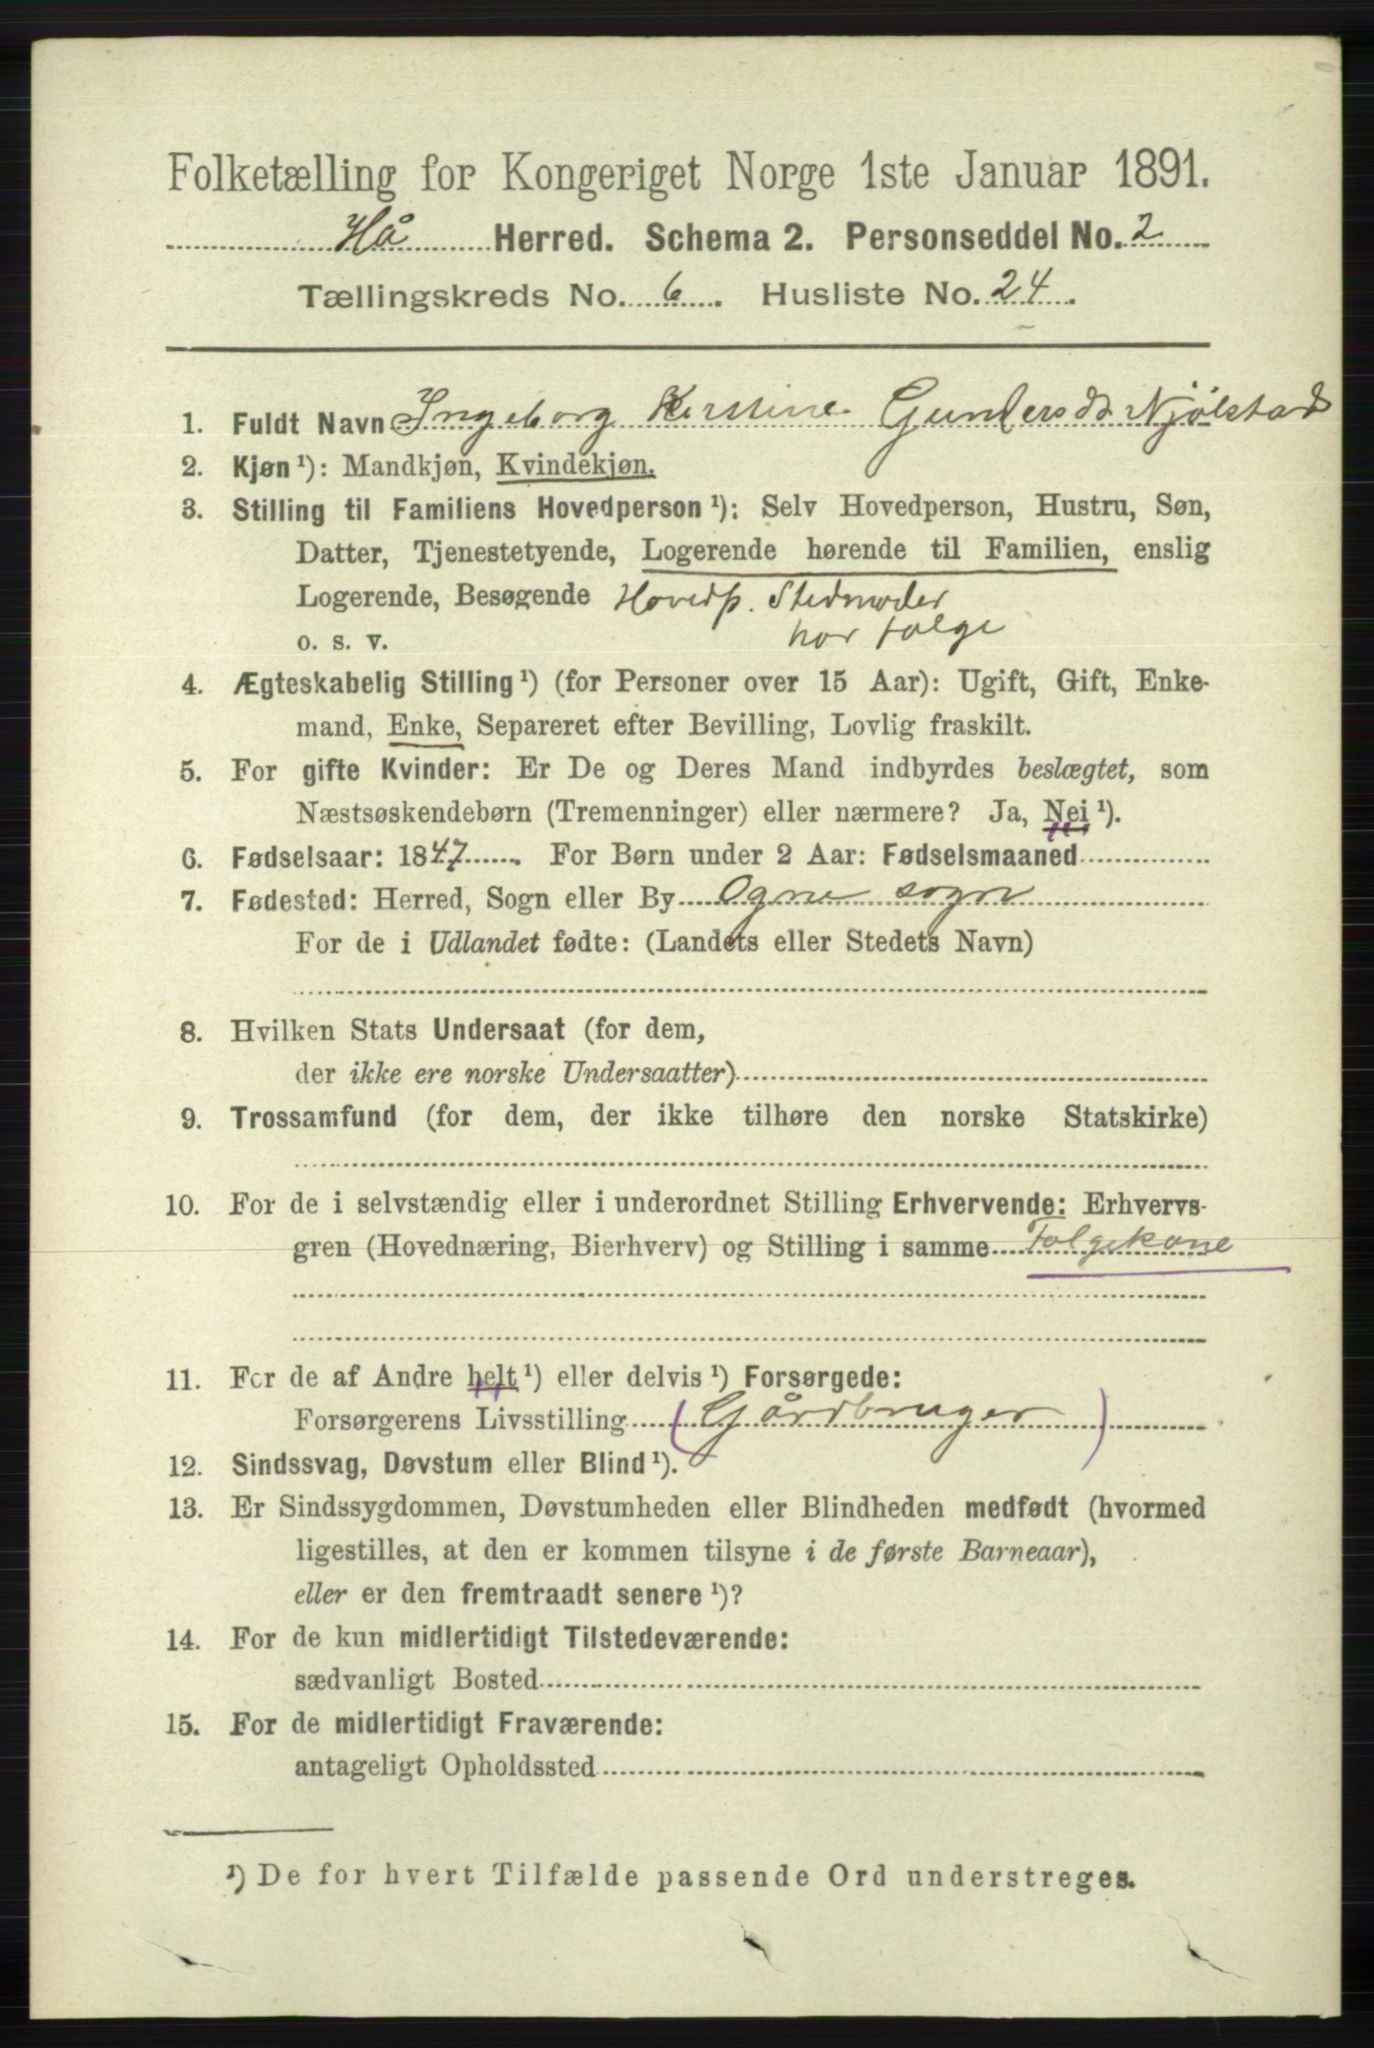 Folketælling for Kongeriget Norge 1ste Januar 1891.
Hå Herred. Schema 2. Personseddel No. 2
Tællingskreds No. 6. Husliste No. 24.
1. Fuldt Navn Ingeborg Kirstine Gundersdr Njølstad
2. Kjøn ¹): Mandkjøn, Kvindekjøn.
3. Stilling til Familiens Hovedperson ¹): Selv Hovedperson, Hustru, Søn,
Datter, Tjenestetyende, Logerende hørende til Familien, enslig
Logerende, Besøgende Hovedp. Stedmoder
o. s. v. har folge
4. Ægteskabelig Stilling ¹) (for Personer over 15 Aar): Ugift, Gift, Enke-
mand, Enke, Separeret efter Bevilling, Lovlig fraskilt.
5. For gifte Kvinder: Er De og Deres Mand indbyrdes beslægtet, som
Næstsøskendebørn (Tremenninger) eller nærmere? Ja, Nei ¹).
6. Fødselsaar: 1847. For Børn under 2 Aar: Fødselsmaaned
7. Fødested: Herred, Sogn eller By Ogne sogn
For de i Udlandet fødte: (Landets eller Stedets Navn)
8. Hvilken Stats Undersaat (for dem,
der ikke ere norske Undersaatter)
9. Trossamfund (for dem, der ikke tilhøre den norske Statskirke)
10. For de i selvstændig eller i underordnet Stilling Erhvervende: Erhvervs-
gren (Hovednæring, Bierhverv) og Stilling i samme Folgekone
11. For de af Andre helt ¹) eller delvis ¹) Forsørgede:
Forsørgerens Livsstilling (Gårdbruger)
12. Sindssvag, Døvstum eller Blind ¹).
13. Er Sindssygdommen, Døvstumheden eller Blindheden medfødt (hvormed
ligestilles, at den er kommen tilsyne i de første Barneaar),
eller er den fremtraadt senere ¹)?
14. For de kun midlertidigt Tilstedeværende:
sædvanligt Bosted
15. For de midlertidigt Fraværende:
antageligt Opholdssted
¹) De for hvert Tilfælde passende Ord understreges.